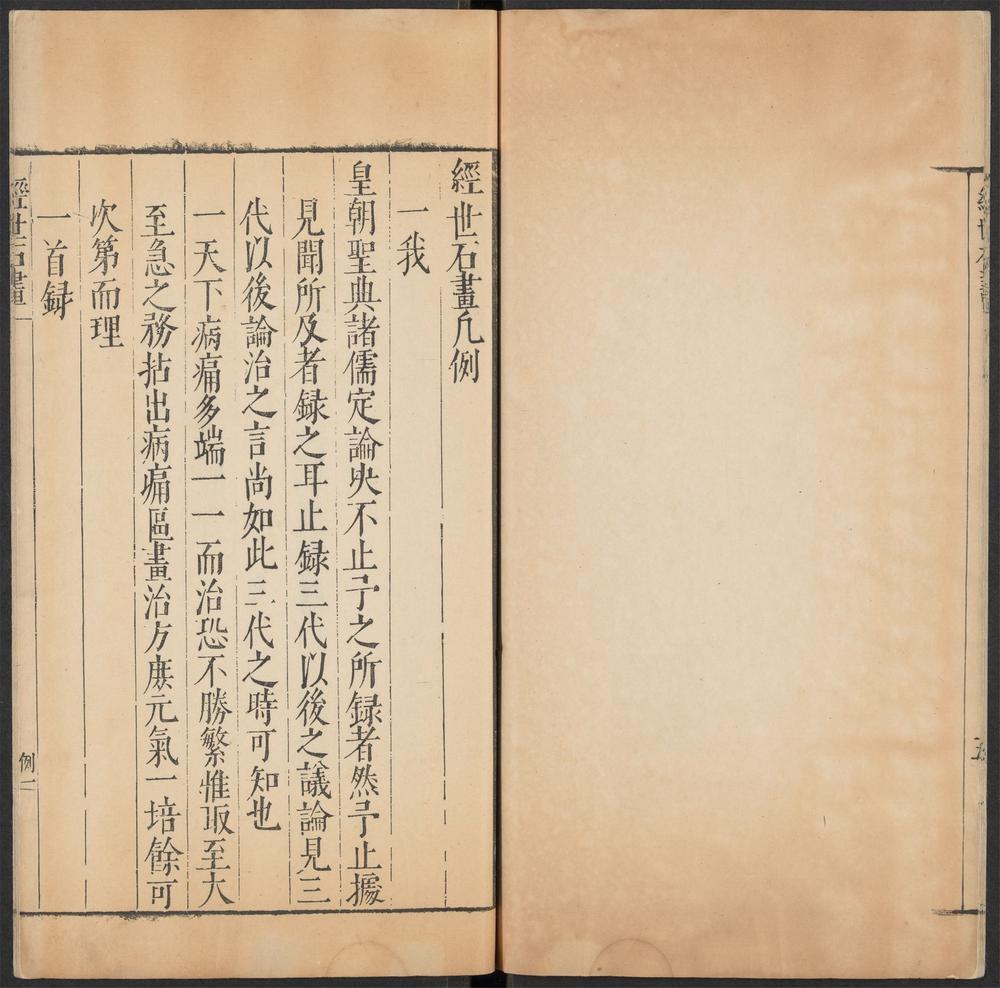 經世石畫凡例
一我
皇朝聖典諸儒定論决不止予之所録者然予止據
見聞所及者録之耳止録三代以後之議論見三
代以後論治之言尚如此三代之時可知也
一天下病痛多端一一而治恐不勝繁惟取至大
至急之務拈出病痛區畫治方庶元氣一培餘可
次第而理
一首録
經世石畫
例一